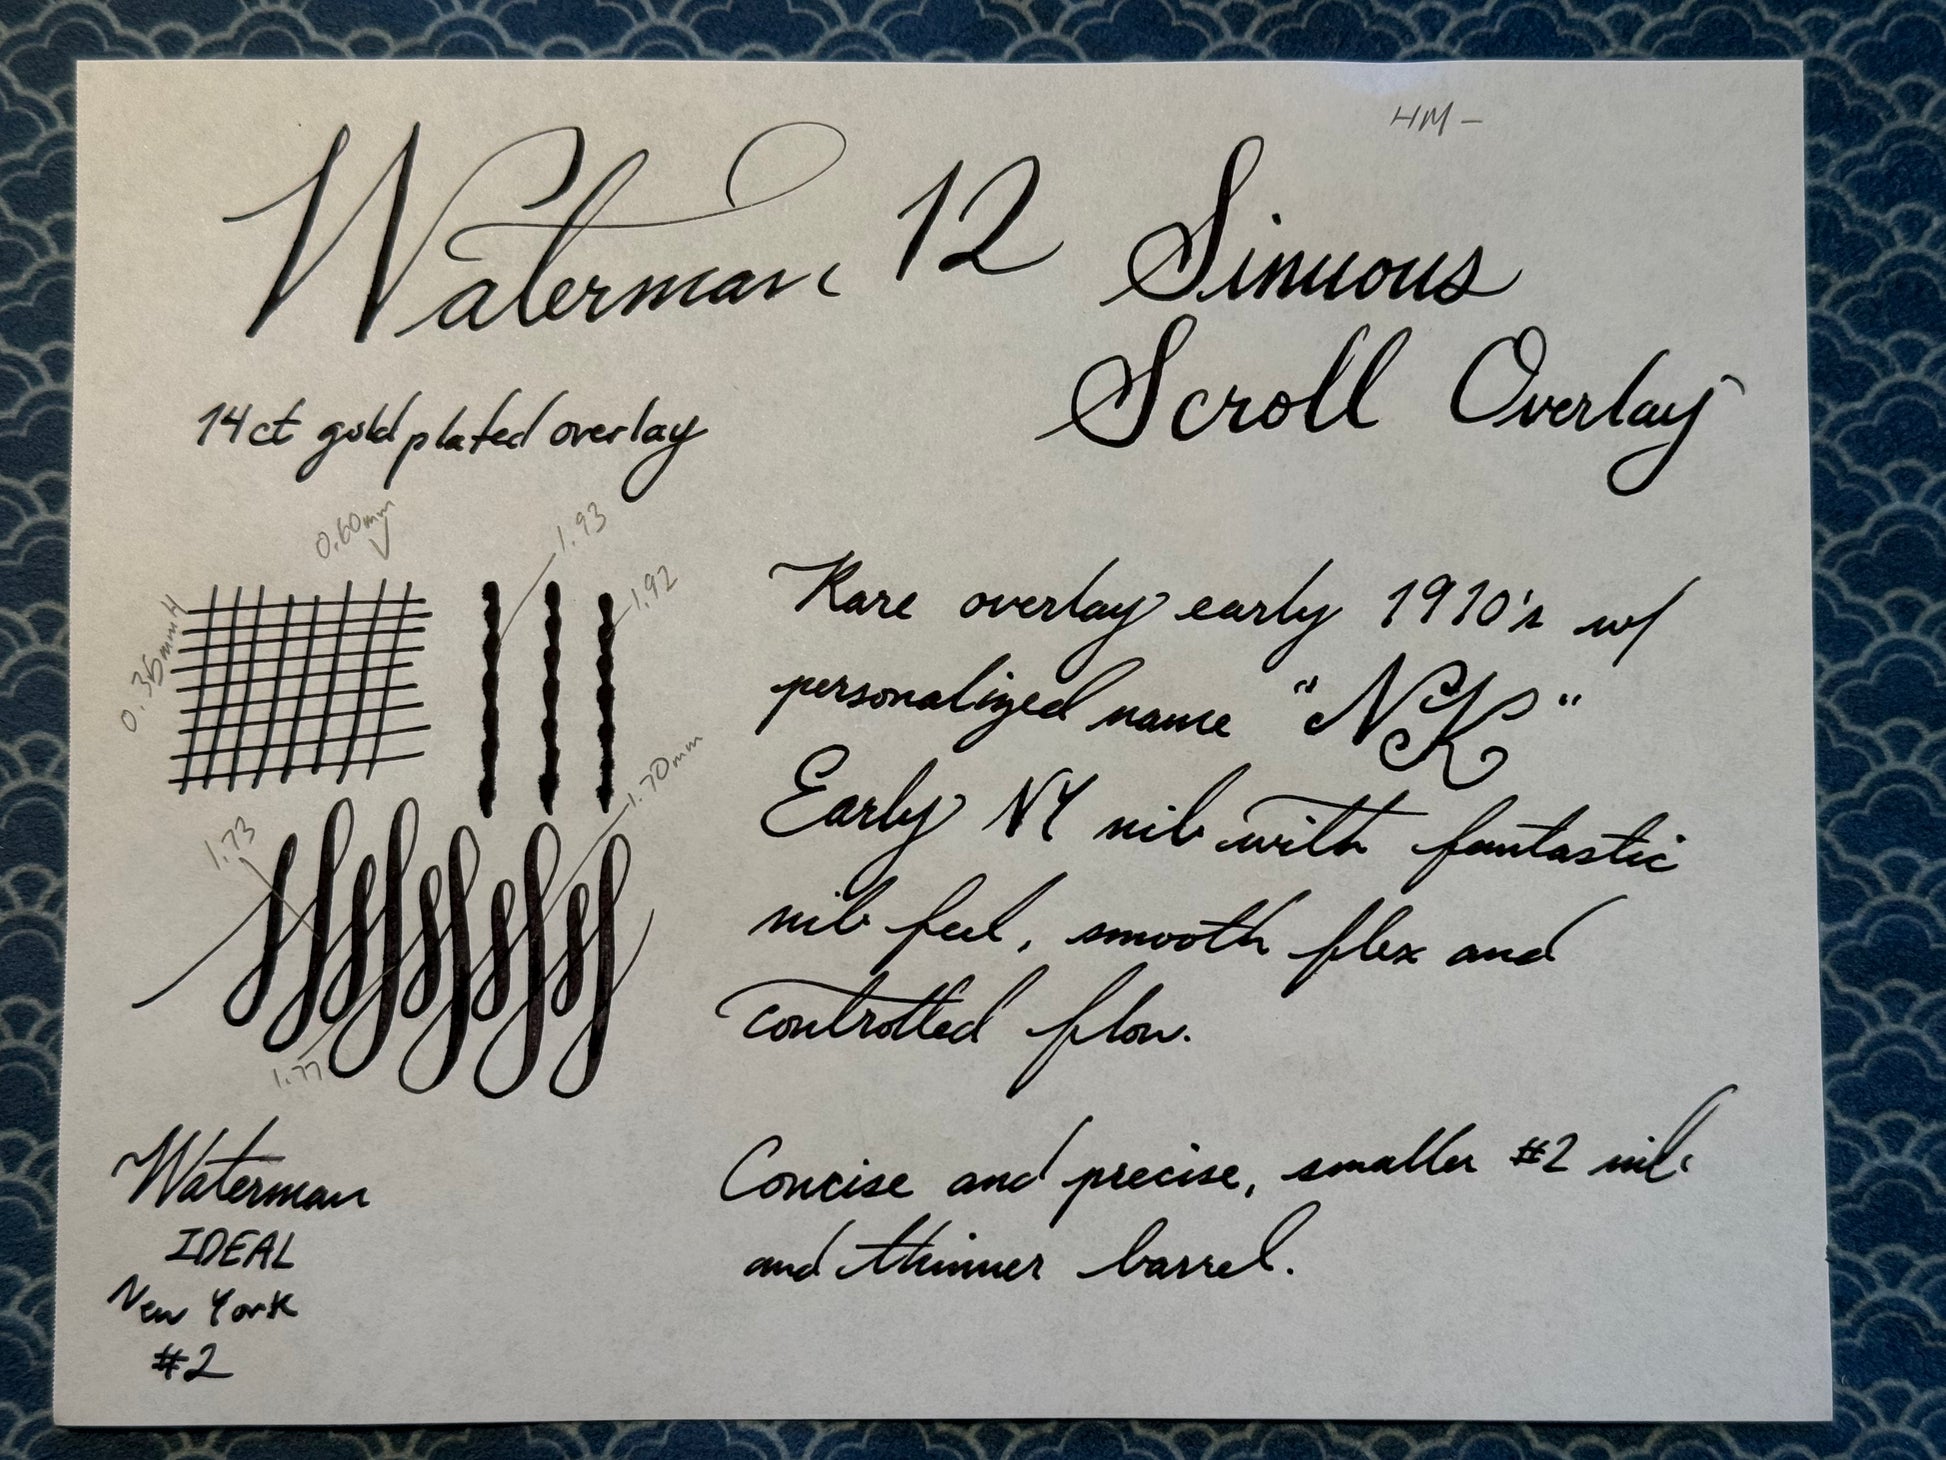 HM –
Waterman 12 Sinuous
Scroll Overlay
14ct gold plated overlay
0.60mm
1.93
1.92
0.36mm H
1.70mm
1.73
1.77
Rare overlay early 1910's w/
personalized name "NK"
Early NY nib with fantastic
nib feel, smooth flex and
controlled flow.
Waterman
IDEAL
New York
#2
Concise and precise, smaller #2 nib
and thinner barrel.